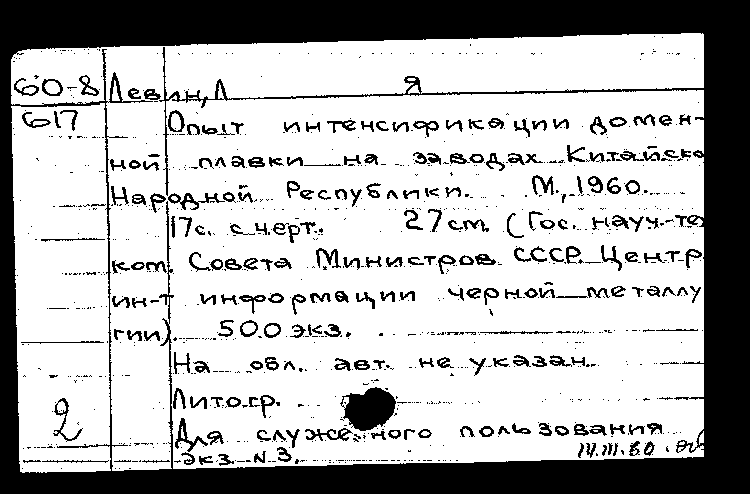 60-8 Левин, Л Я
617 Опыт интенсификации домен-
ной плавки на заводах Китайско
Народной Республики. М., 1960.
17с. с черт. 27см. (Гос. науч.-те
ком. Совета Министров СССР. Центр.
ин-т информации черной металлу
гии). 500 экз.
На обл. авт. не указан.
Литогр.
2 Для служебного пользования
экз. N 3. 14.III.60.